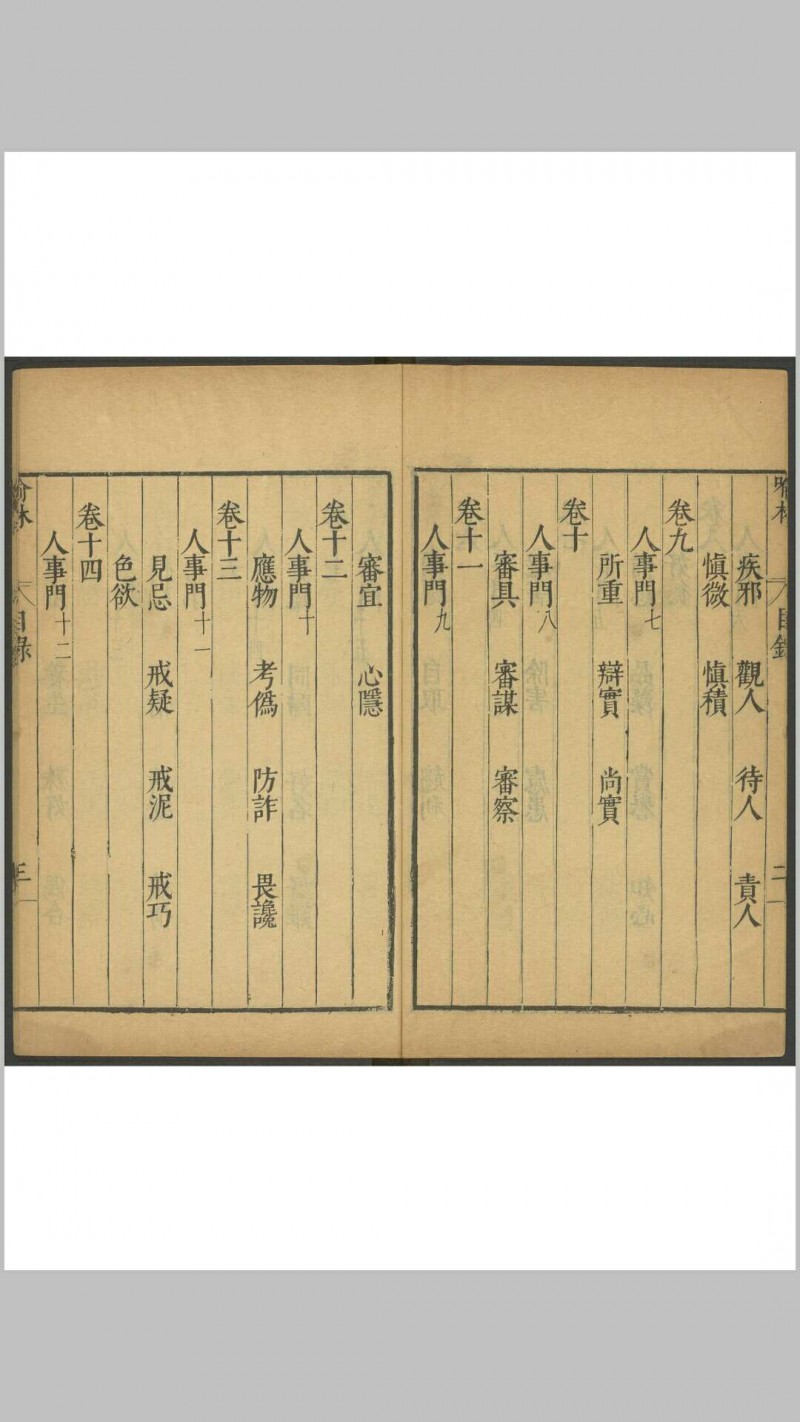 疾邪 觀人 待人 責人
愼微 愼積
卷九
人事門 七
所重 辯實 尚實
卷十
人事門 八
審具 審謀 審察
卷十一
人事門 九
審宜 心隱
卷十二
人事門 十
應物 考僞 防詐 畏讒
卷十三
人事門 十一
見忌 戒疑 戒泥 戒巧
色欲
卷十四
人事門 十二